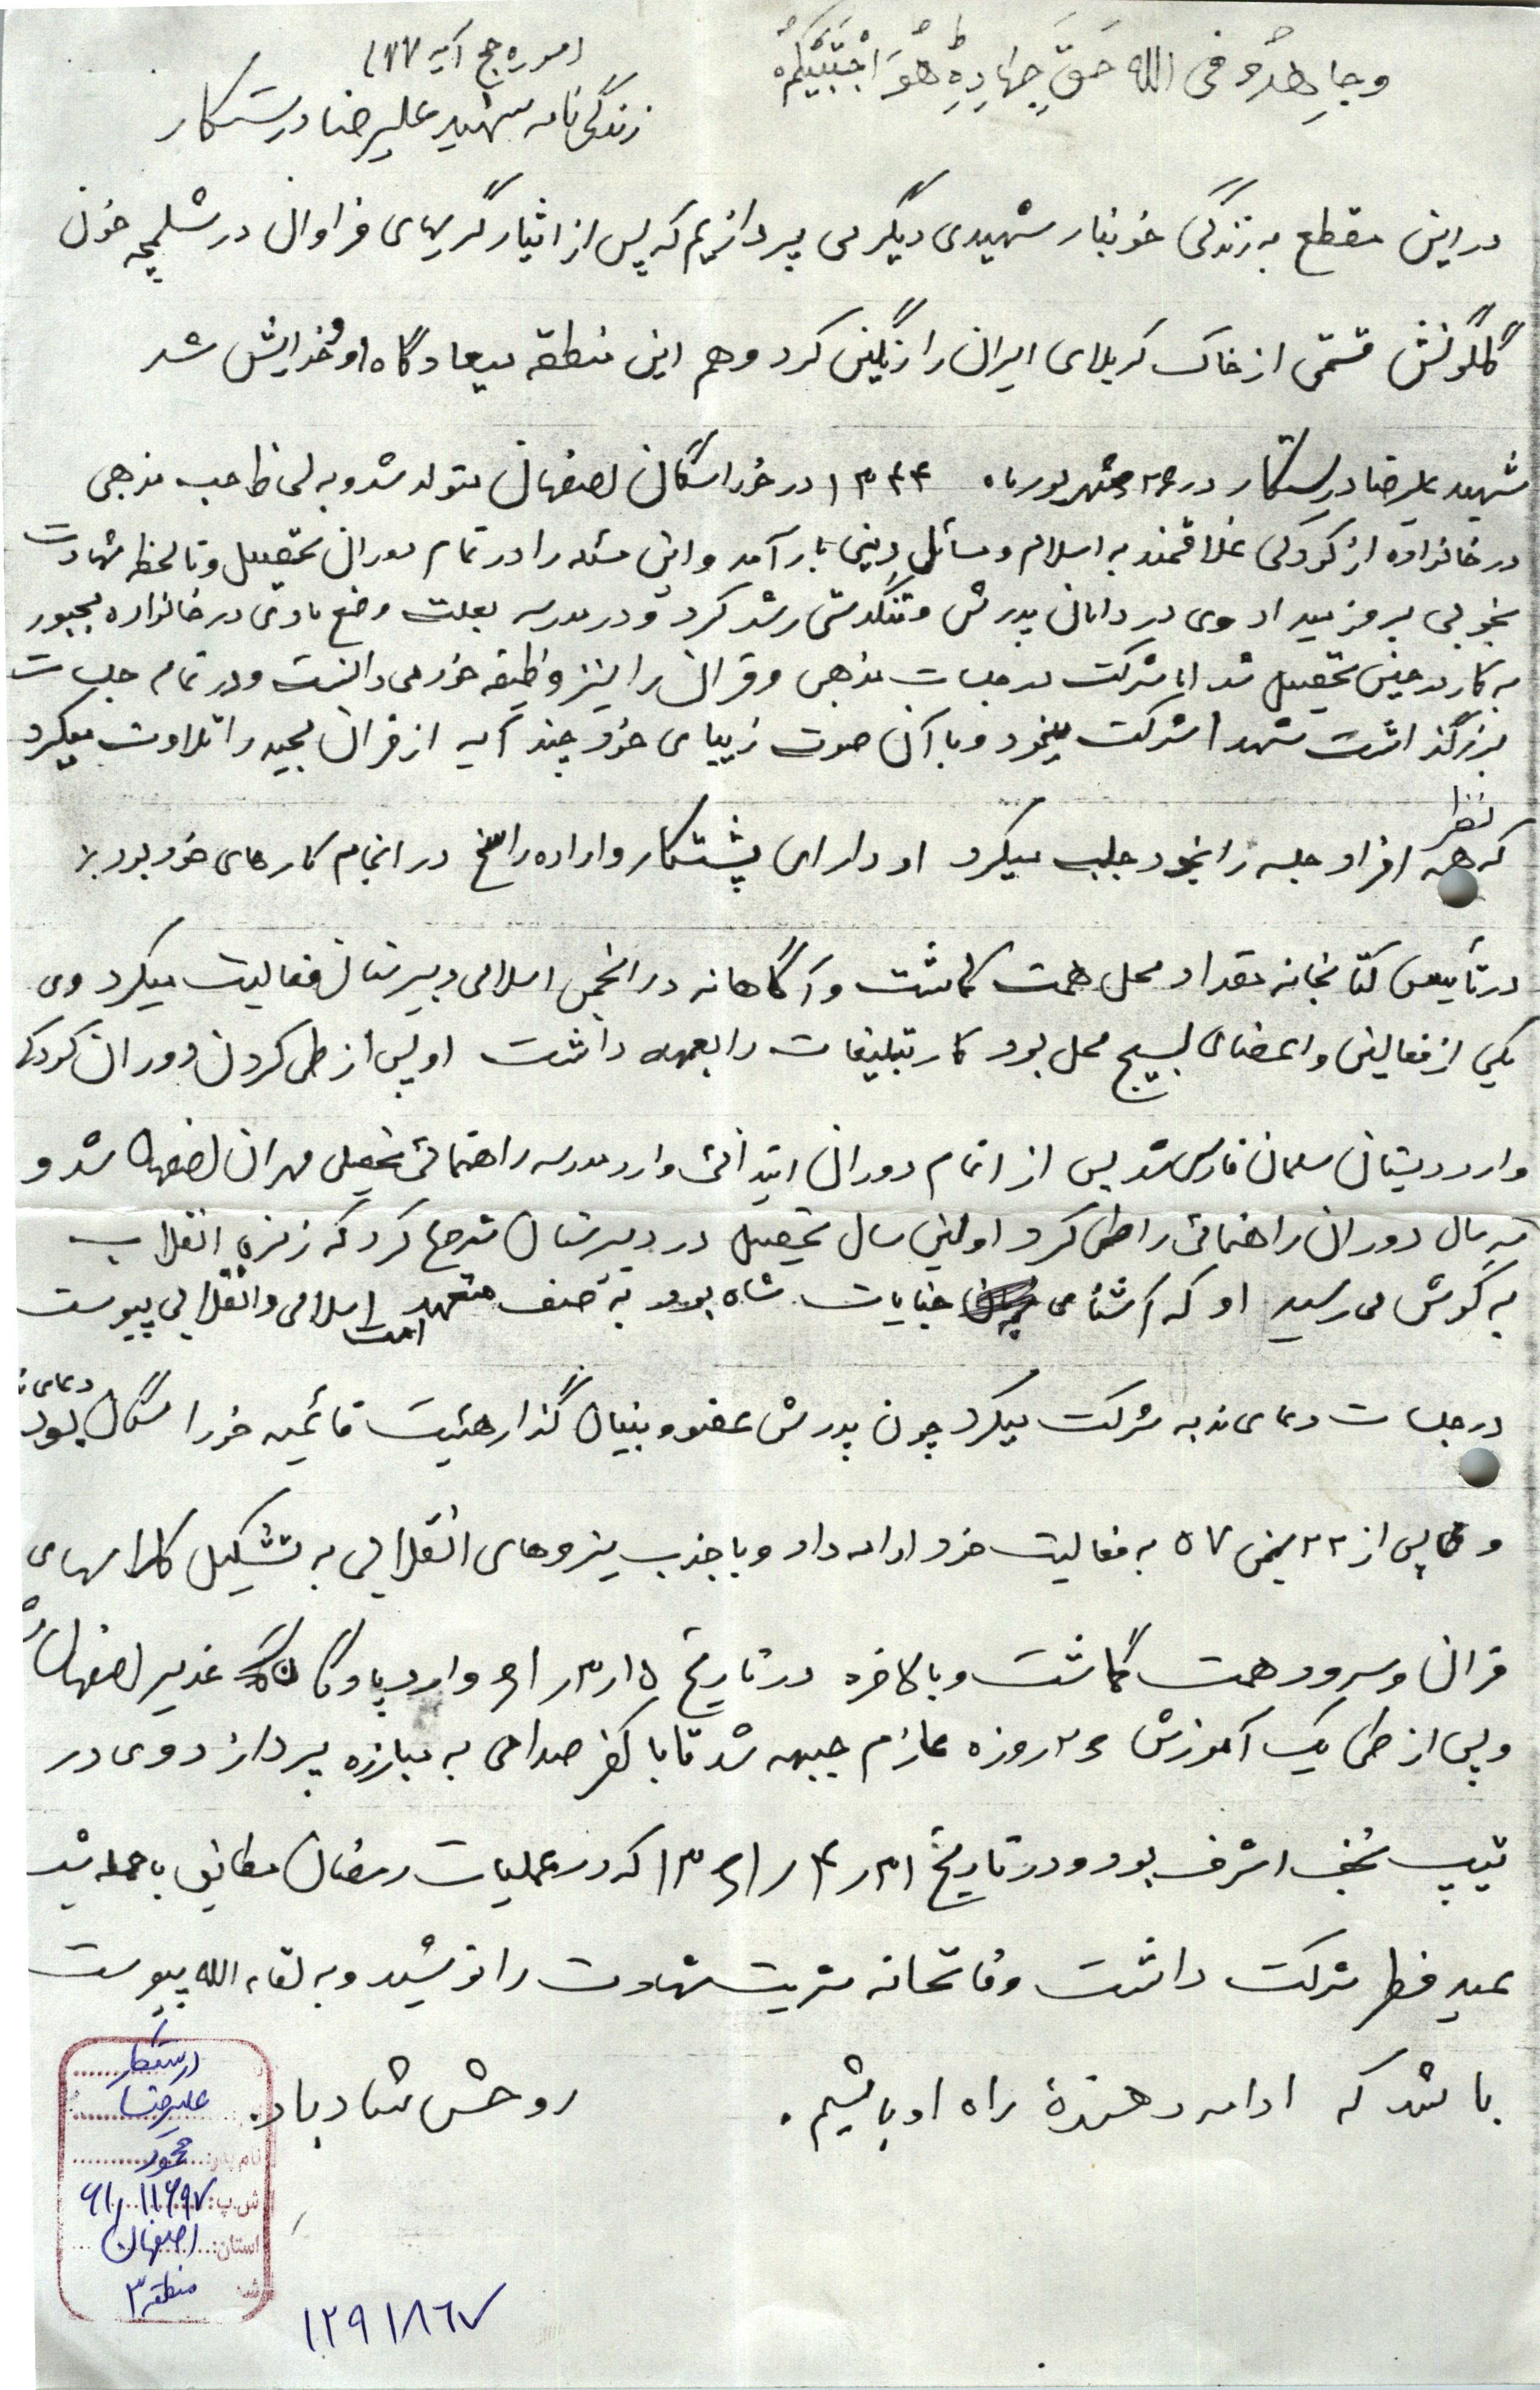 وجاهِدُو فی الله حَقَّ جِهادِهِ هُوَ اجْتَبَیکُم
(سوره حج آیه ۷۷)
زندگی نامه شهید علیرضا درستکار
در این مقطع به زندگی خونبار شهیدی دیگر می پردازیم که پس از ایثارگریهای فراوان در شلمچه خون
گلگونش قسمتی از خاک کربلای ایران را رنگین کرد و هم این منطقه میعادگاه او و خدایش شد
شهید علیرضا درستکار در ۲۶ شهریورماه ۱۳۴۴ در خوراسگان اصفهان متولد شد و به لحاظ حب مذهبی
در خانواده از کودکی علاقمند به اسلام و مسائل دینی بار آمد و این مسئله را در تمام دوران تحصیل و تا لحظه شهادت
بخوبی بروز میداد وی در دامان پدرش و تنگدستی رشد کرد و در مدرسه بعلت وضع مادی در خانواده مجبور
به کار در حین تحصیل شد اما شرکت در جلسات مذهبی و قرآن را نیز وظیفه خود می دانست و در تمام جلسات
بزرگذاشت شهدا شرکت مینمود و با آن صوت زیبای خود چند آیه از قرآن مجید را تلاوت میکرد
که نظر همه افراد جلسه را بخود جلب میکرد او دارای پشتکار و اراده راسخ در انجام کارهای خود بود
در تأسیس کتابخانه مقداد محل همت گماشت و آگاهانه در انجمن اسلامی دبیرستان فعالیت میکرد وی
یکی از فعالین و اعضای بسیج محل بود کار تبلیغات را بعهده داشت او پس از طی کردن دوران کودکی
وارد دبستان سلمان فارسی شد پس از اتمام دوران ابتدائی وارد مدرسه راهنمائی تحصیلی مهران اصفهان شد و
سه سال دوران راهنمائی را طی کرد اولین سال تحصیل در دبیرستان شروع کرد که زمزمه انقلاب
به گوش می رسید او که آشنای جنایات شاه بود به صف متعهد امت اسلامی و انقلابی پیوست
در جلسات دعای ندبه شرکت میکرد چون پدرش عضو و بنیان گذار هئیت قائمیه خوراسگان بود دعای
و پس از ۲۲ بهمن ۵۷ به فعالیت خود ادامه داد و با جذب نیروهای انقلابی به تشکیل کلاسهای
قرآن و سرود همت گماشت و بالاخره در تاریخ ۱۵ر۳ر۶۱ وارد پادگان غدیر اصفهان شد
و پس از طی یک آموزش ۲۶ روزه عازم جبهه شد تا با کفر صدامی به مبارزه بپردازد وی در
تیپ نجف اشرف بود و در تاریخ ۳۱ر۴ر۱۳۶۱ که در عملیات رمضان مطابق با حمله شب
عید فطر شرکت داشت و فاتحانه شربت شهادت را نوشید و به لقاء الله پیوست
باشد که ادامه دهندهٔ راه او باشیم. روحش شاد باد.
درستکار
علیرضا
نام پدر: محمود
ش پ: ۶۱٫۱۱۶۹۷
استان: اصفهان
منطقه ۳
۱۲۹۱۸۶۷